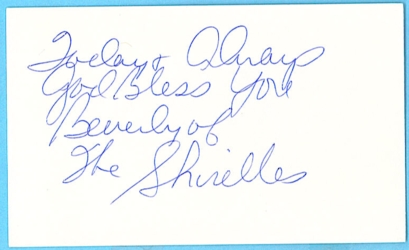 Today & Always
God Bless You
Beverly of
The Shirelles